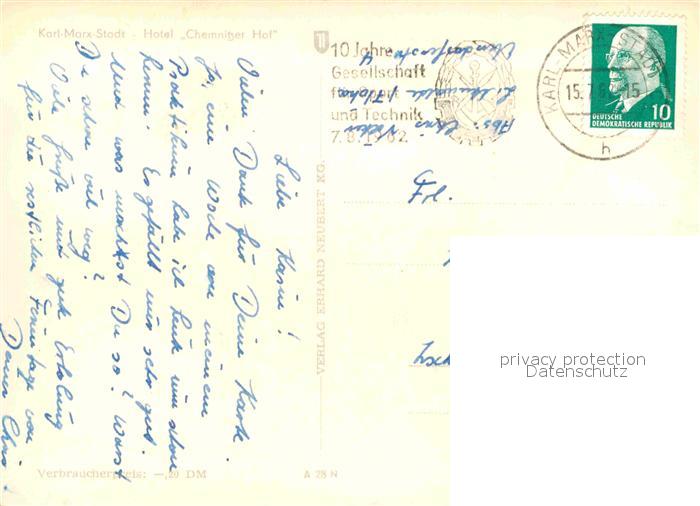 Karl-Marx-Stadt - Hotel „Chemnitzer Hof"
Liebe Karin!
Vielen Dank für Deine Karte.
Ja, eine Woche von meinem
Praktikum habe ich heute nun schon
herum. Es gefällt mir sehr gut.
Und was machst Du so? Warst
Du schon viel weg?
Viele Grüße und gute Erholung
für die restlichen Ferientage von
Deiner Chris.
Verbraucherpreis: —,20 DM
A 28 N
VERLAG ERHARD NEUBERT KG.
10 Jahre
Gesellschaft
für Sport
und Technik
7. 8. 1962
Abs.: Chris
KARL-MARX-STADT
15.7.6 -15
h
10
DEUTSCHE
DEMOKRATISCHE REPUBLIK
privacy protection
Datenschutz